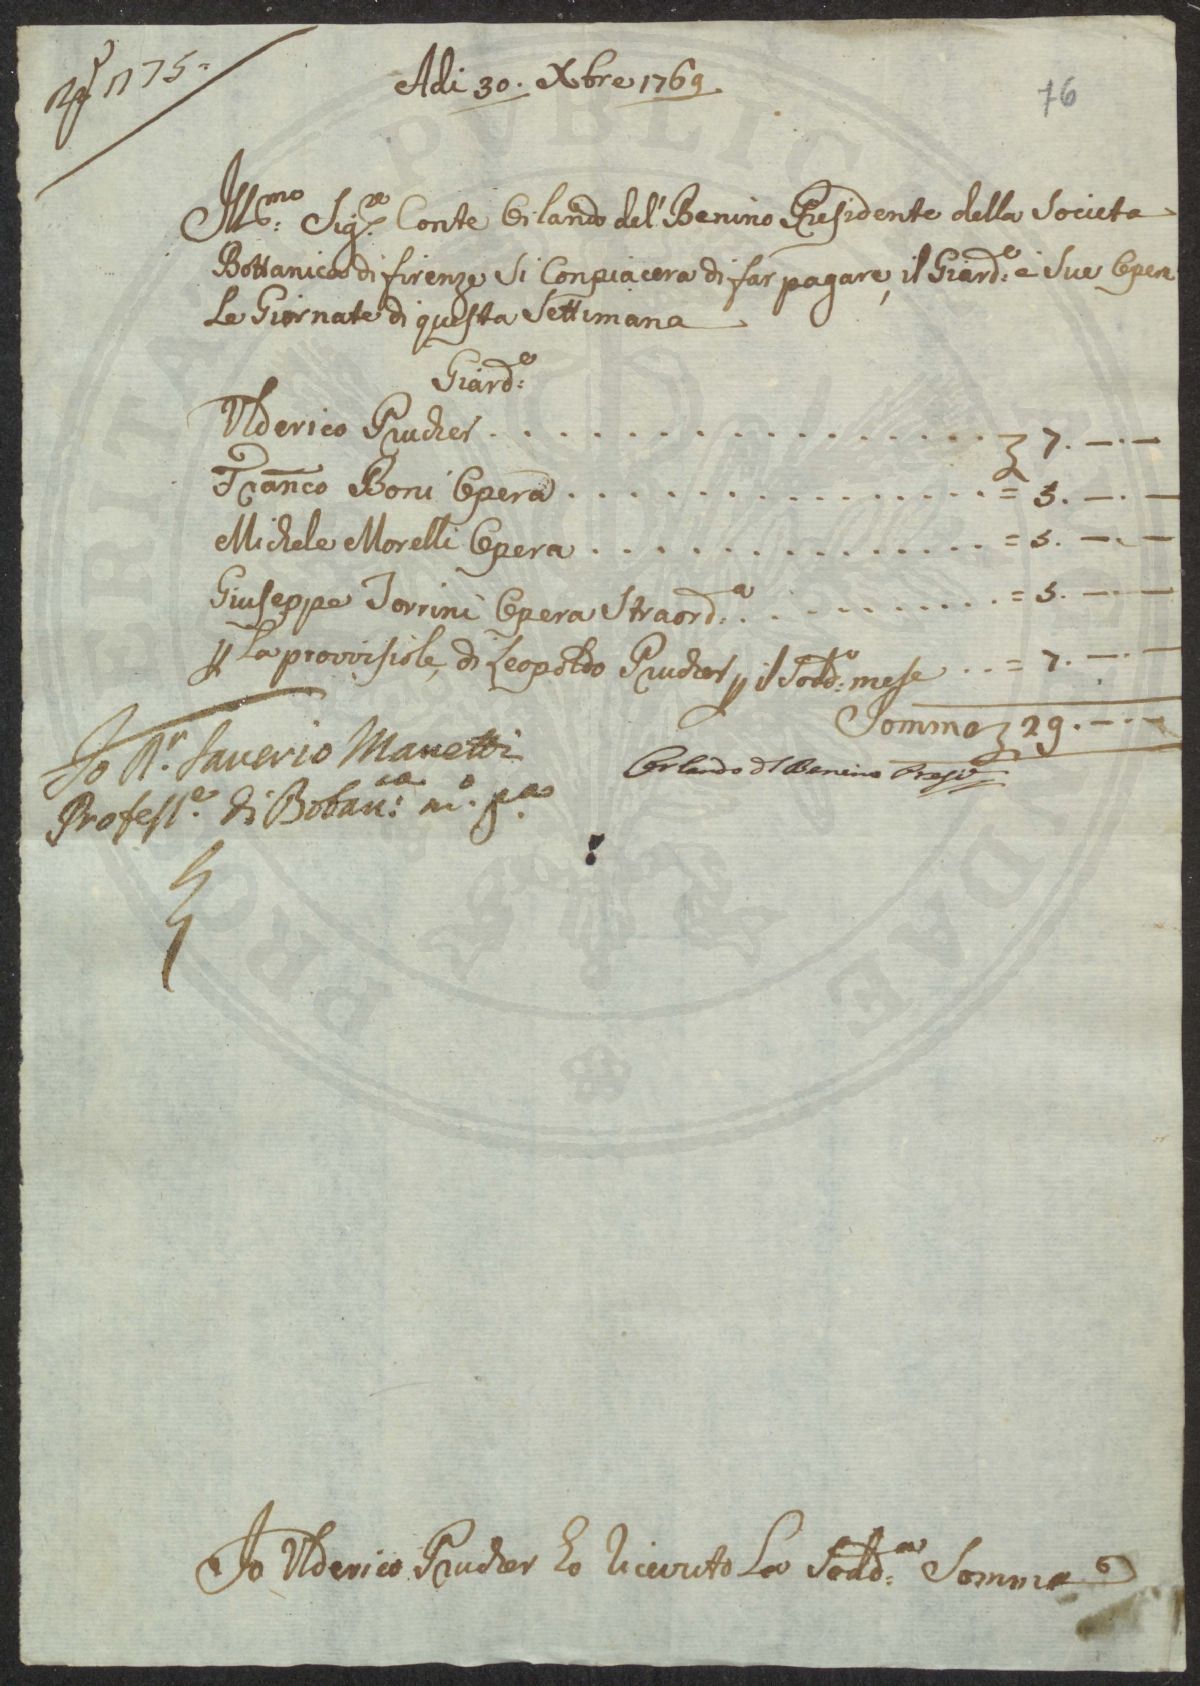 1175
Adi 30. Xbre 1769
16
Ill:mo Sig:re Conte Orlando del Benino Presidente della Societa
Bottanica di firenze Si Conpiacera di far pagare, il Giard:e e Sue Opere
Le Giornate di questa Settimana
Giard:e
Ulderico Prucher . . . . . . . . . . . . . . . . 7. —.—
Franco Boni Opera . . . . . . . . . . . . . = 5. —.—
Michele Morelli Opera . . . . . . . . . . . . = 5. —.—
Giuseppe Torrini Opera Straord:a . . . . . . . . . = 5. —.—
La provvisiole, di Leopoldo Prucher il Sodd:o mese . . = 7. —.—
Somma 29. —.—
Io D.r Saverio Manetti
Orlando del Benino Presid
Profess.e di Botan:ca m.o p.a
Io Ulderico Prucher ho ricevuto La Sodd:a Somma
PVBLICAE